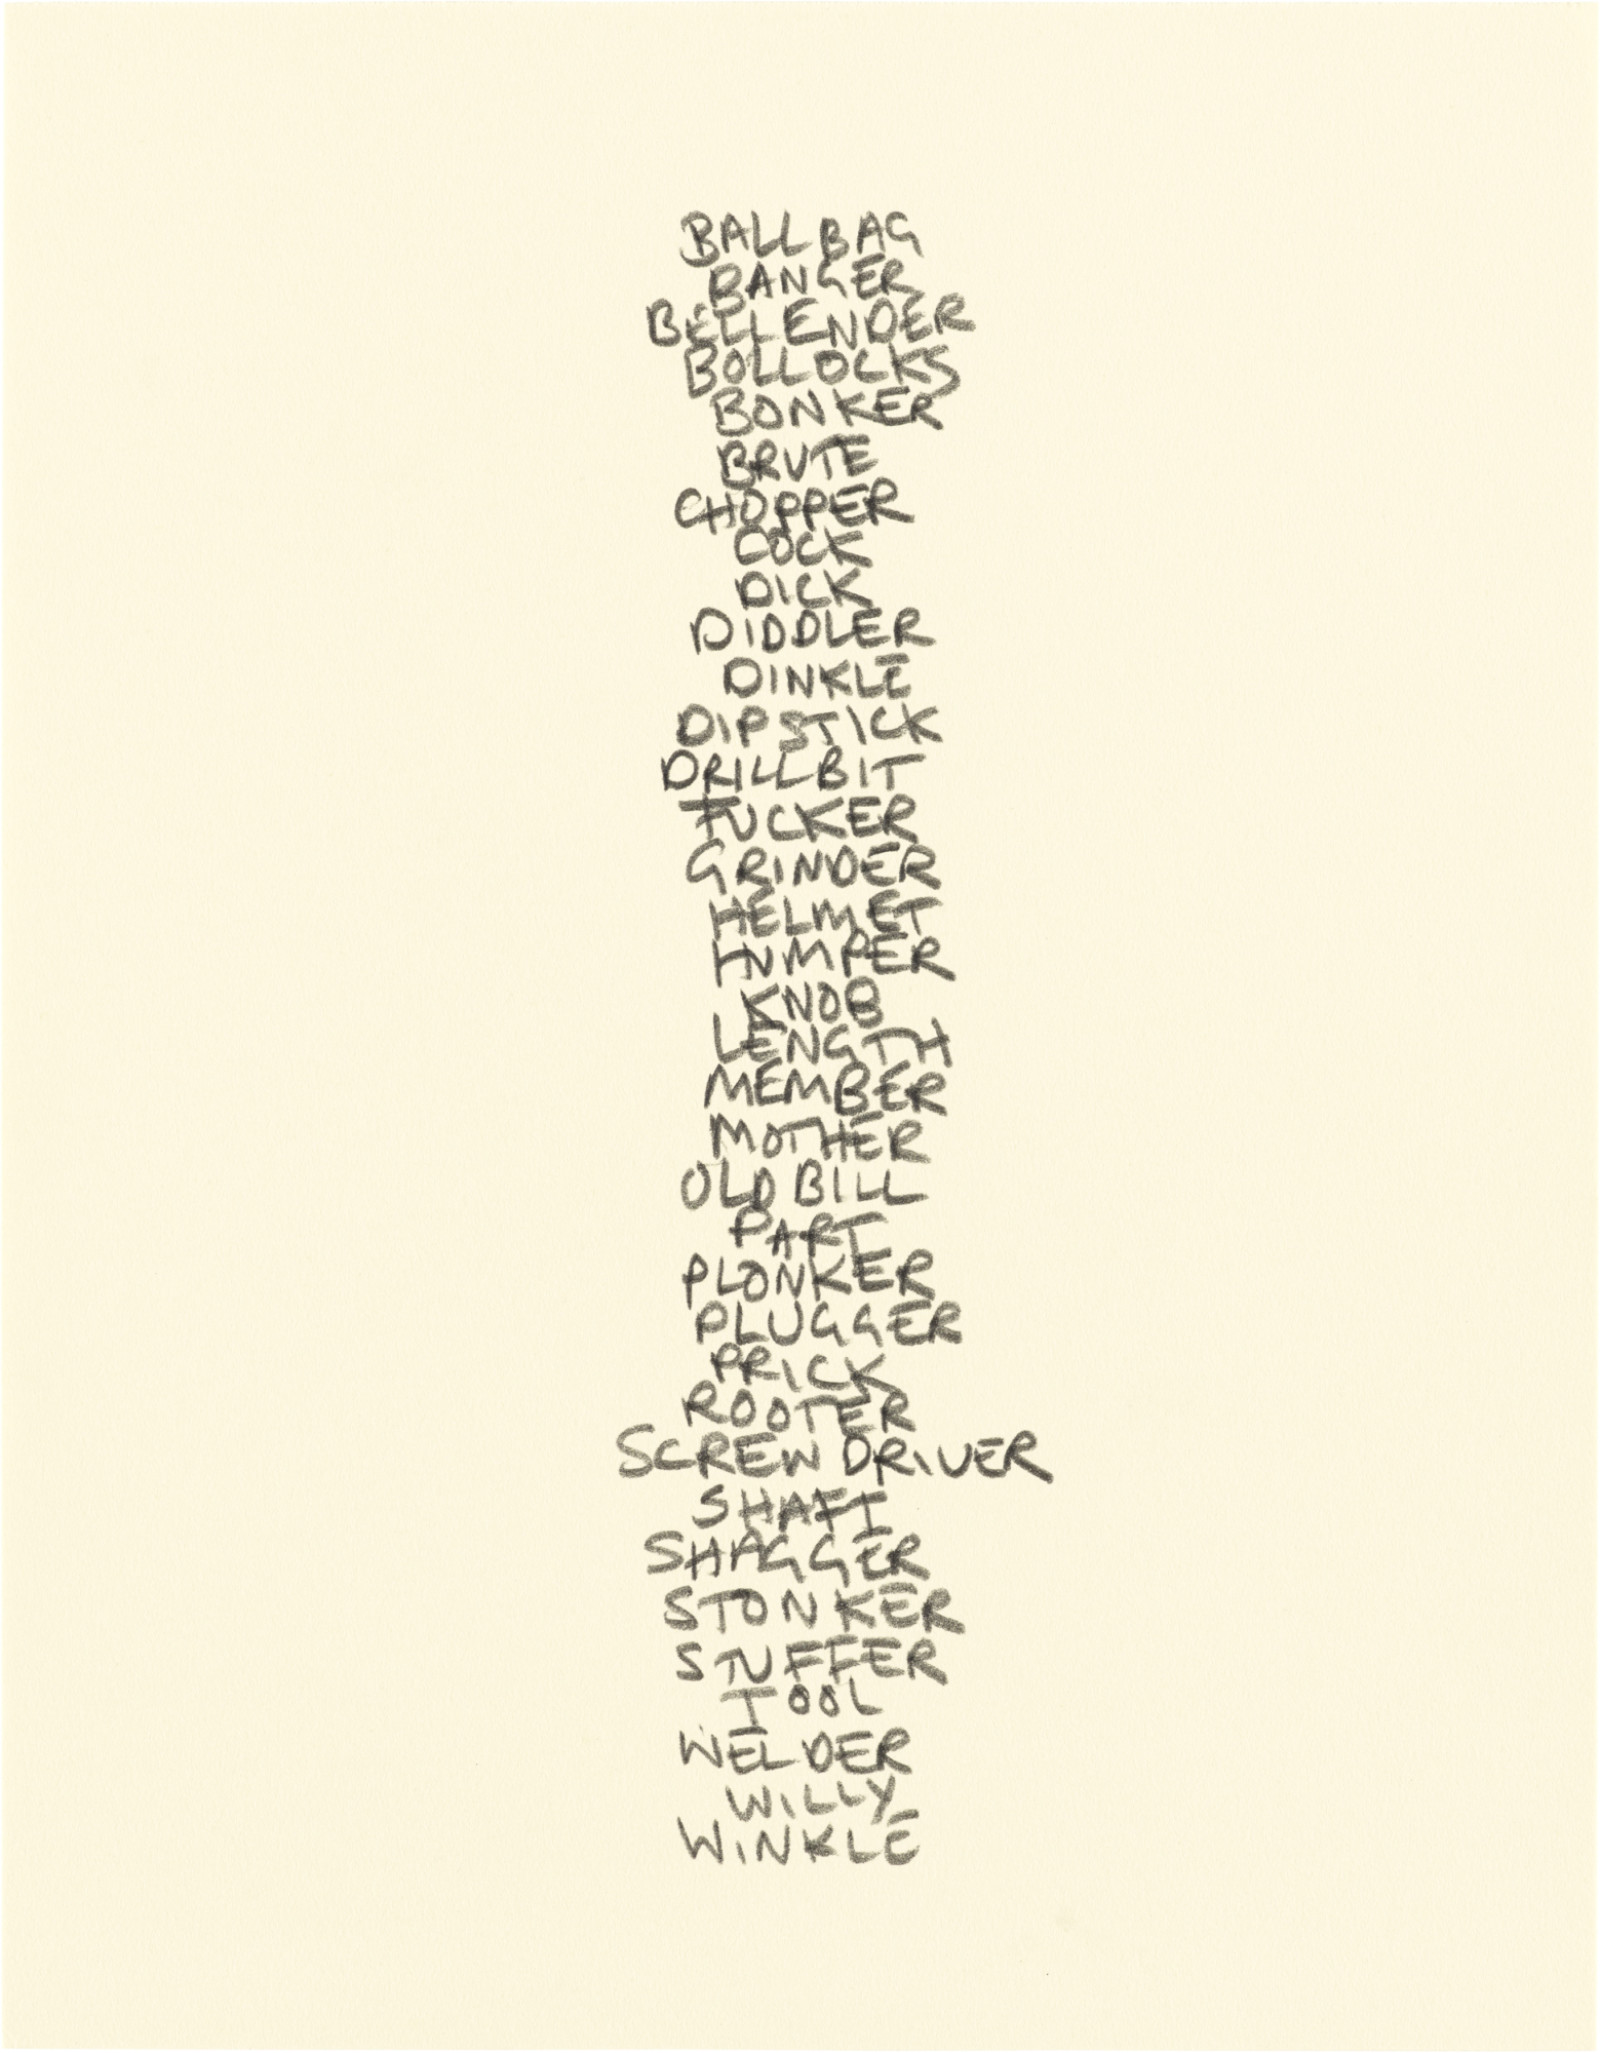 BALLBAG
BANGER
BELLENDER
BOLLOCKS
BONKER
BRUTE
CHOPPER
COCK
DICK
DIDDLER
DINKLE
DIPSTICK
DRILLBIT
FUCKER
GRINDER
HELMET
HUMPER
KNOB
LENGTH
MEMBER
MOTHER
OLD BILL
PART
PLONKER
PLUGGER
PRICK
ROOTER
SCREW DRIVER
SHAFT
SHAGGER
STONKER
STUFFER
TOOL
WELDER
WILLY
WINKLE